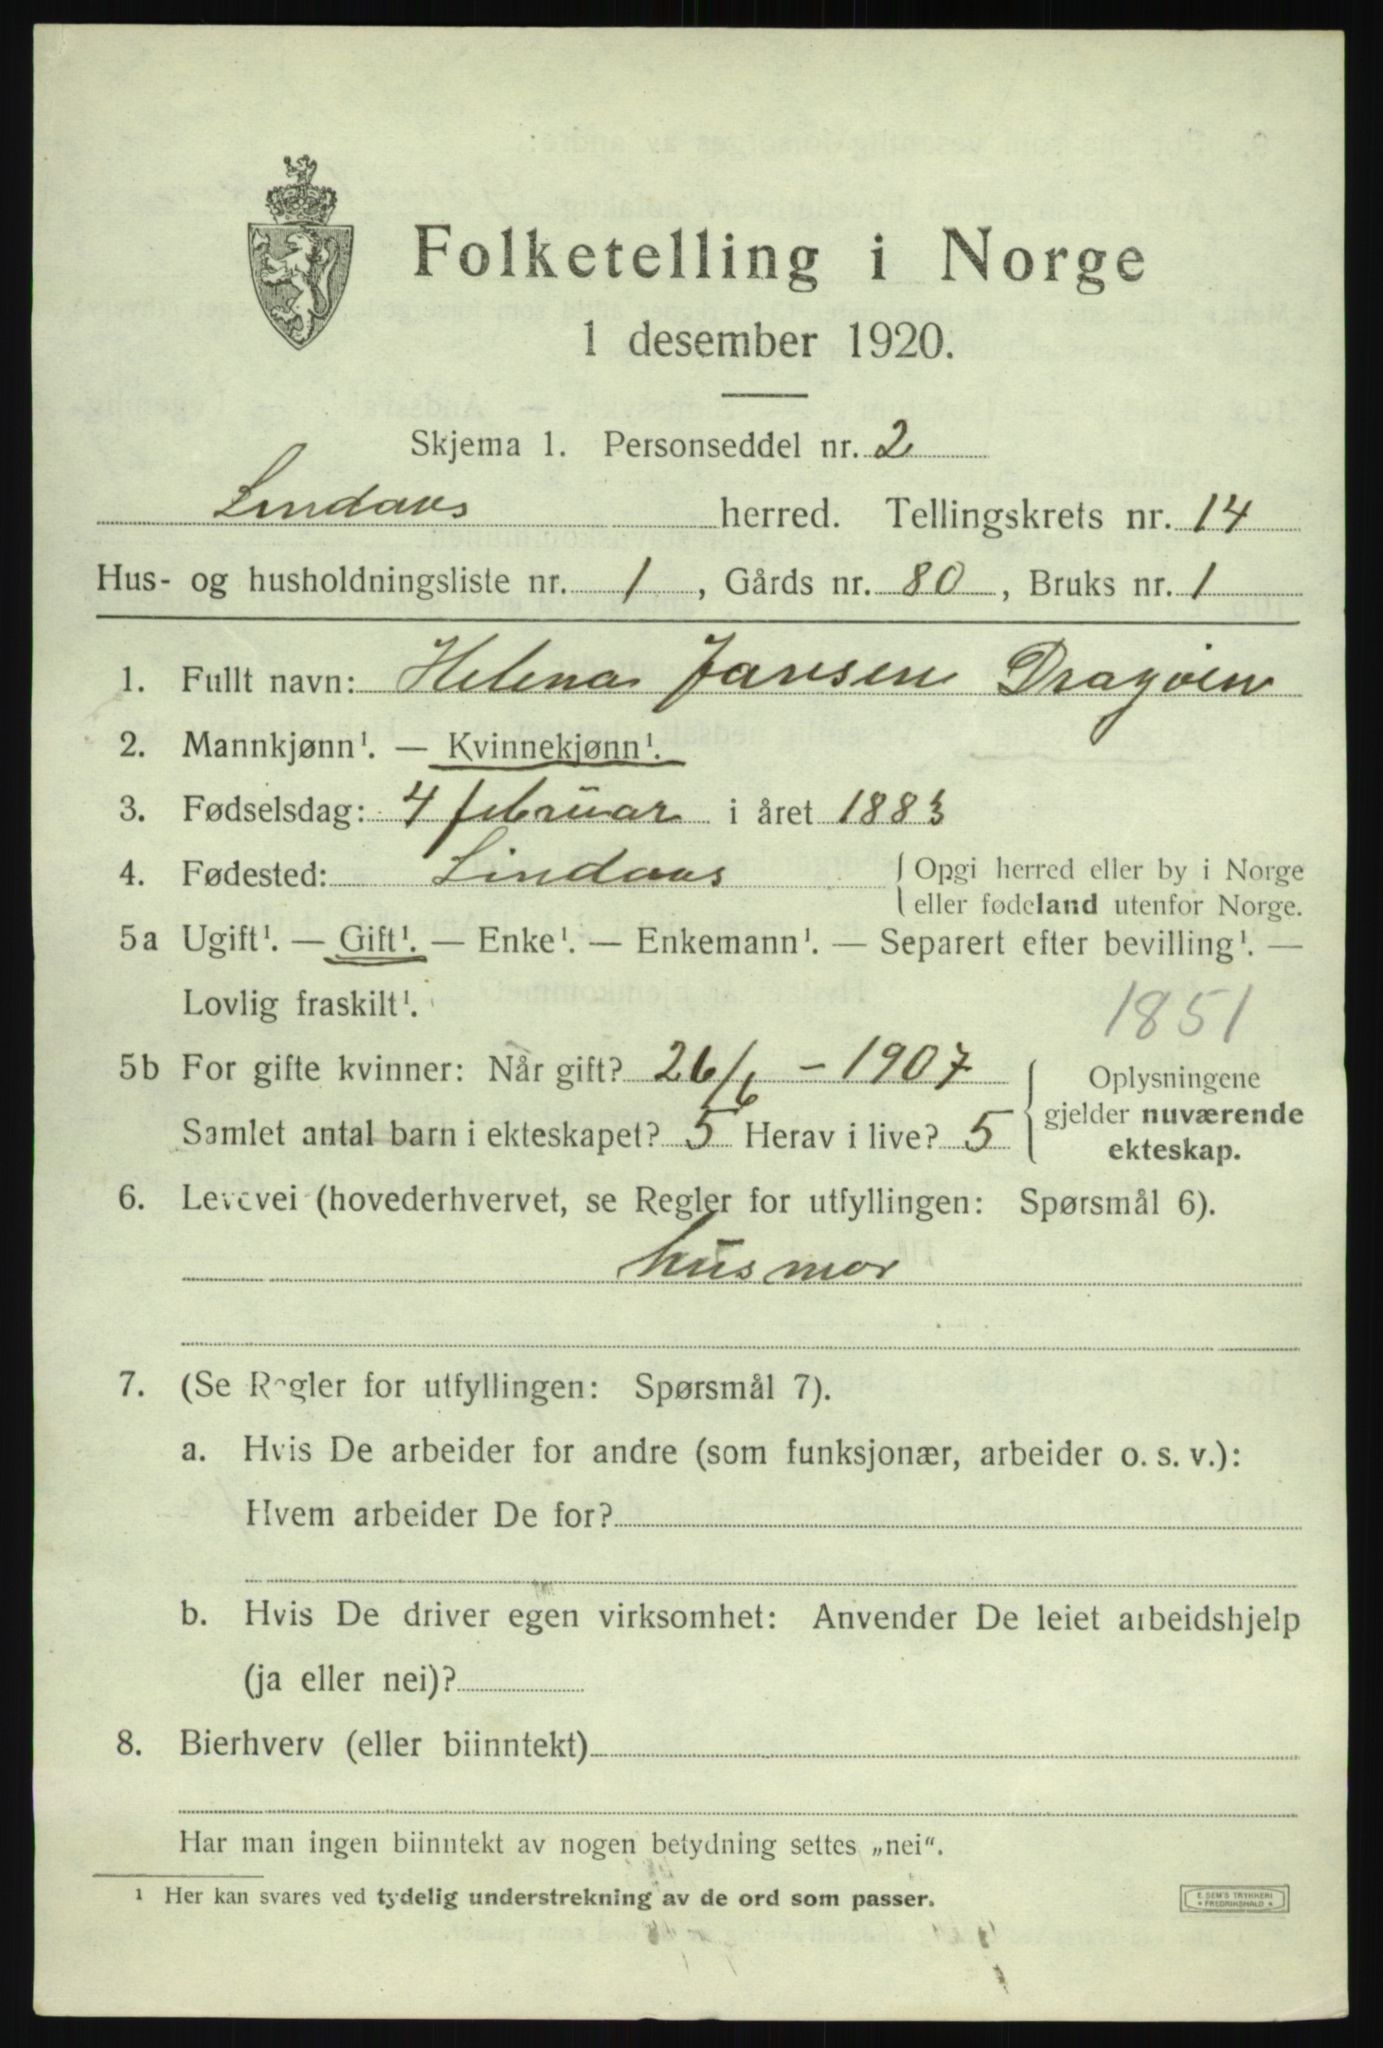 Folketelling i Norge
1 desember 1920.
Skjema 1. Personseddel nr. 2
Lindaas herred. Tellingskrets nr. 14
Hus- og husholdningsliste nr. 1, Gårds nr. 80, Bruks nr. 1
1. Fullt navn: Helena Jansen Dragøien
2. Mannkjønn¹. — Kvinnekjønn¹.
3. Fødselsdag: 4 februar i året 1883
4. Fødested: Lindaas { Opgi herred eller by i Norge
eller fødeland utenfor Norge.
5a Ugift¹. — Gift¹. — Enke¹. — Enkemann¹. — Separert efter bevilling¹. —
Lovlig fraskilt¹.
1851
5b For gifte kvinner: Når gift? 26/6 - 1907
Samlet antal barn i ekteskapet? 5 Herav i live? 5
{ Oplysningene
gjelder nuværende
ekteskap.
6. Levevei (hovederhvervet, se Regler for utfyllingen: Spørsmål 6).
husmor
7. (Se Regler for utfyllingen: Spørsmål 7).
a. Hvis De arbeider for andre (som funksjonær, arbeider o. s. v.):
Hvem arbeider De for?
b. Hvis De driver egen virksomhet: Anvender De leiet arbeidshjelp
(ja eller nei)?
8. Bierhverv (eller biinntekt)
Har man ingen biinntekt av nogen betydning settes „nei“.
¹ Her kan svares ved tydelig understrekning av de ord som passer.
E. SEM'S TRYKKERI
* FREDRIKSHALD *